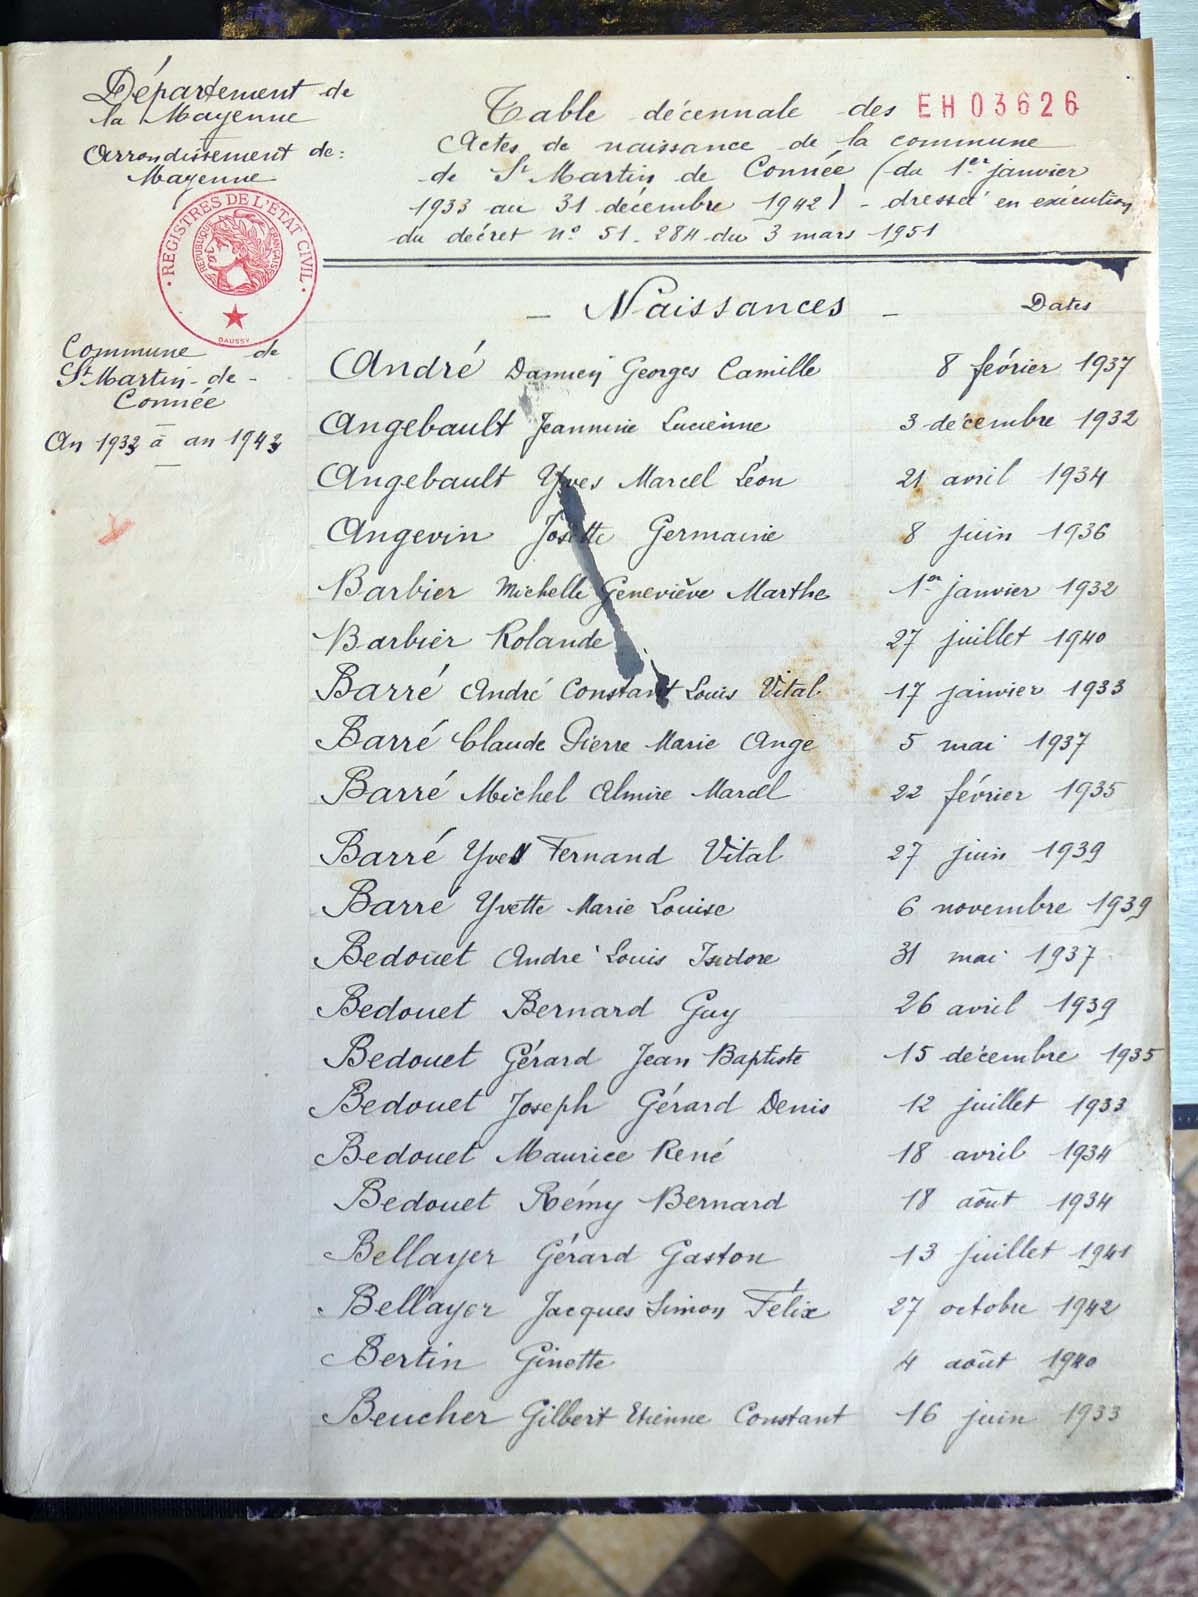 Département de
la Mayenne
Arrondissement de:
Mayenne
Table décennale des EH03626
Actes de naissance de la commune
de St Martin de Connée (du 1er janvier
1933 au 31 décembre 1942) - dressée en exécution
du décret n° 51-284 du 3 mars 1951
REGISTRES DE L'ETAT CIVIL
REPUBLIQUE FRANCAISE
DAUSSY
Commune de
St Martin-de-
Connée
An 1933 à an 1943
- Naissances - Dates
André Damien Georges Camille 8 février 1937
Angebault Jeannine Lucienne 3 décembre 1932
Angebault Yves Marcel Léon 21 avril 1934
Angevin Josette Germaine 8 juin 1936
Barbier Michelle Geneviève Marthe 1er janvier 1932
Barbier Rolande 27 juillet 1940
Barré André Constant Louis Vital 17 janvier 1933
Barré Claude Pierre Marie Ange 5 mai 1937
Barré Michel Almire Marcel 22 février 1935
Barré Yves Fernand Vital 27 juin 1939
Barré Yvette Marie Louise 6 novembre 1939
Bedouet André Louis Isidore 31 mai 1937
Bedouet Bernard Guy 26 avril 1939
Bedouet Gérard Jean Baptiste 15 décembre 1935
Bedouet Joseph Gérard Denis 12 juillet 1933
Bedouet Maurice René 18 avril 1934
Bedouet Rémy Bernard 18 août 1934
Bellayer Gérard Gaston 13 juillet 1941
Bellayer Jacques Simon Félix 27 octobre 1942
Bertin Ginette 4 août 1940
Beucher Gilbert Etienne Constant 16 juin 1933